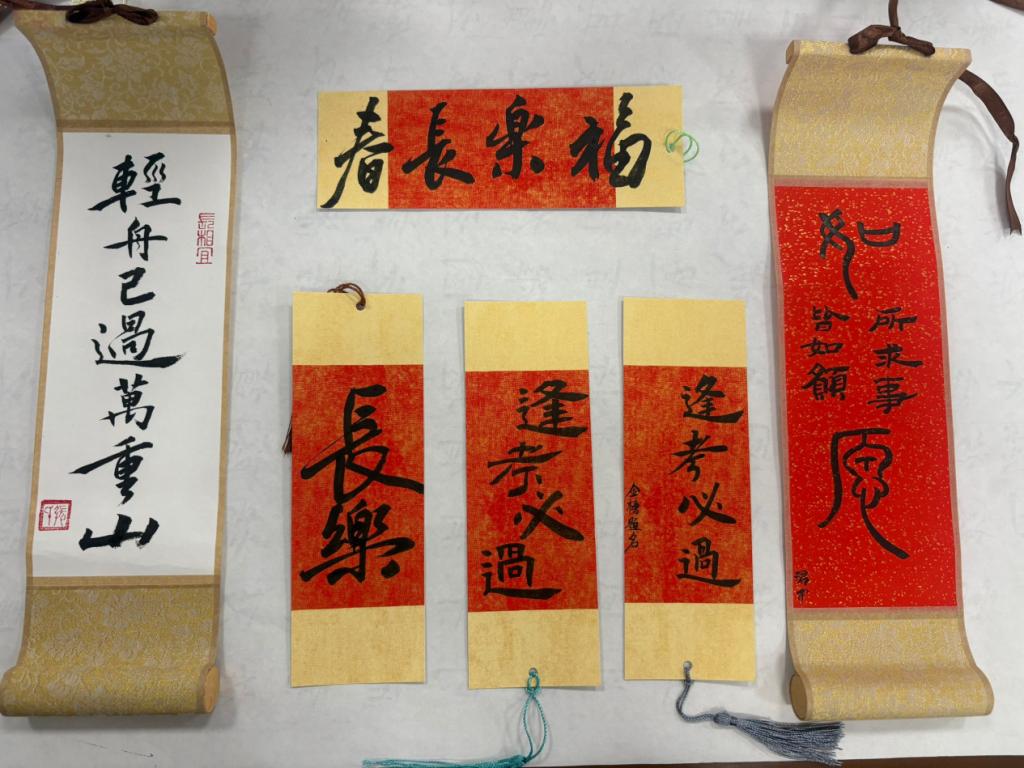 輕舟已過萬重山
長相宜
福樂長春
長樂
逢考必過
逢考必過
金榜題名
如愿
所求事
皆如願